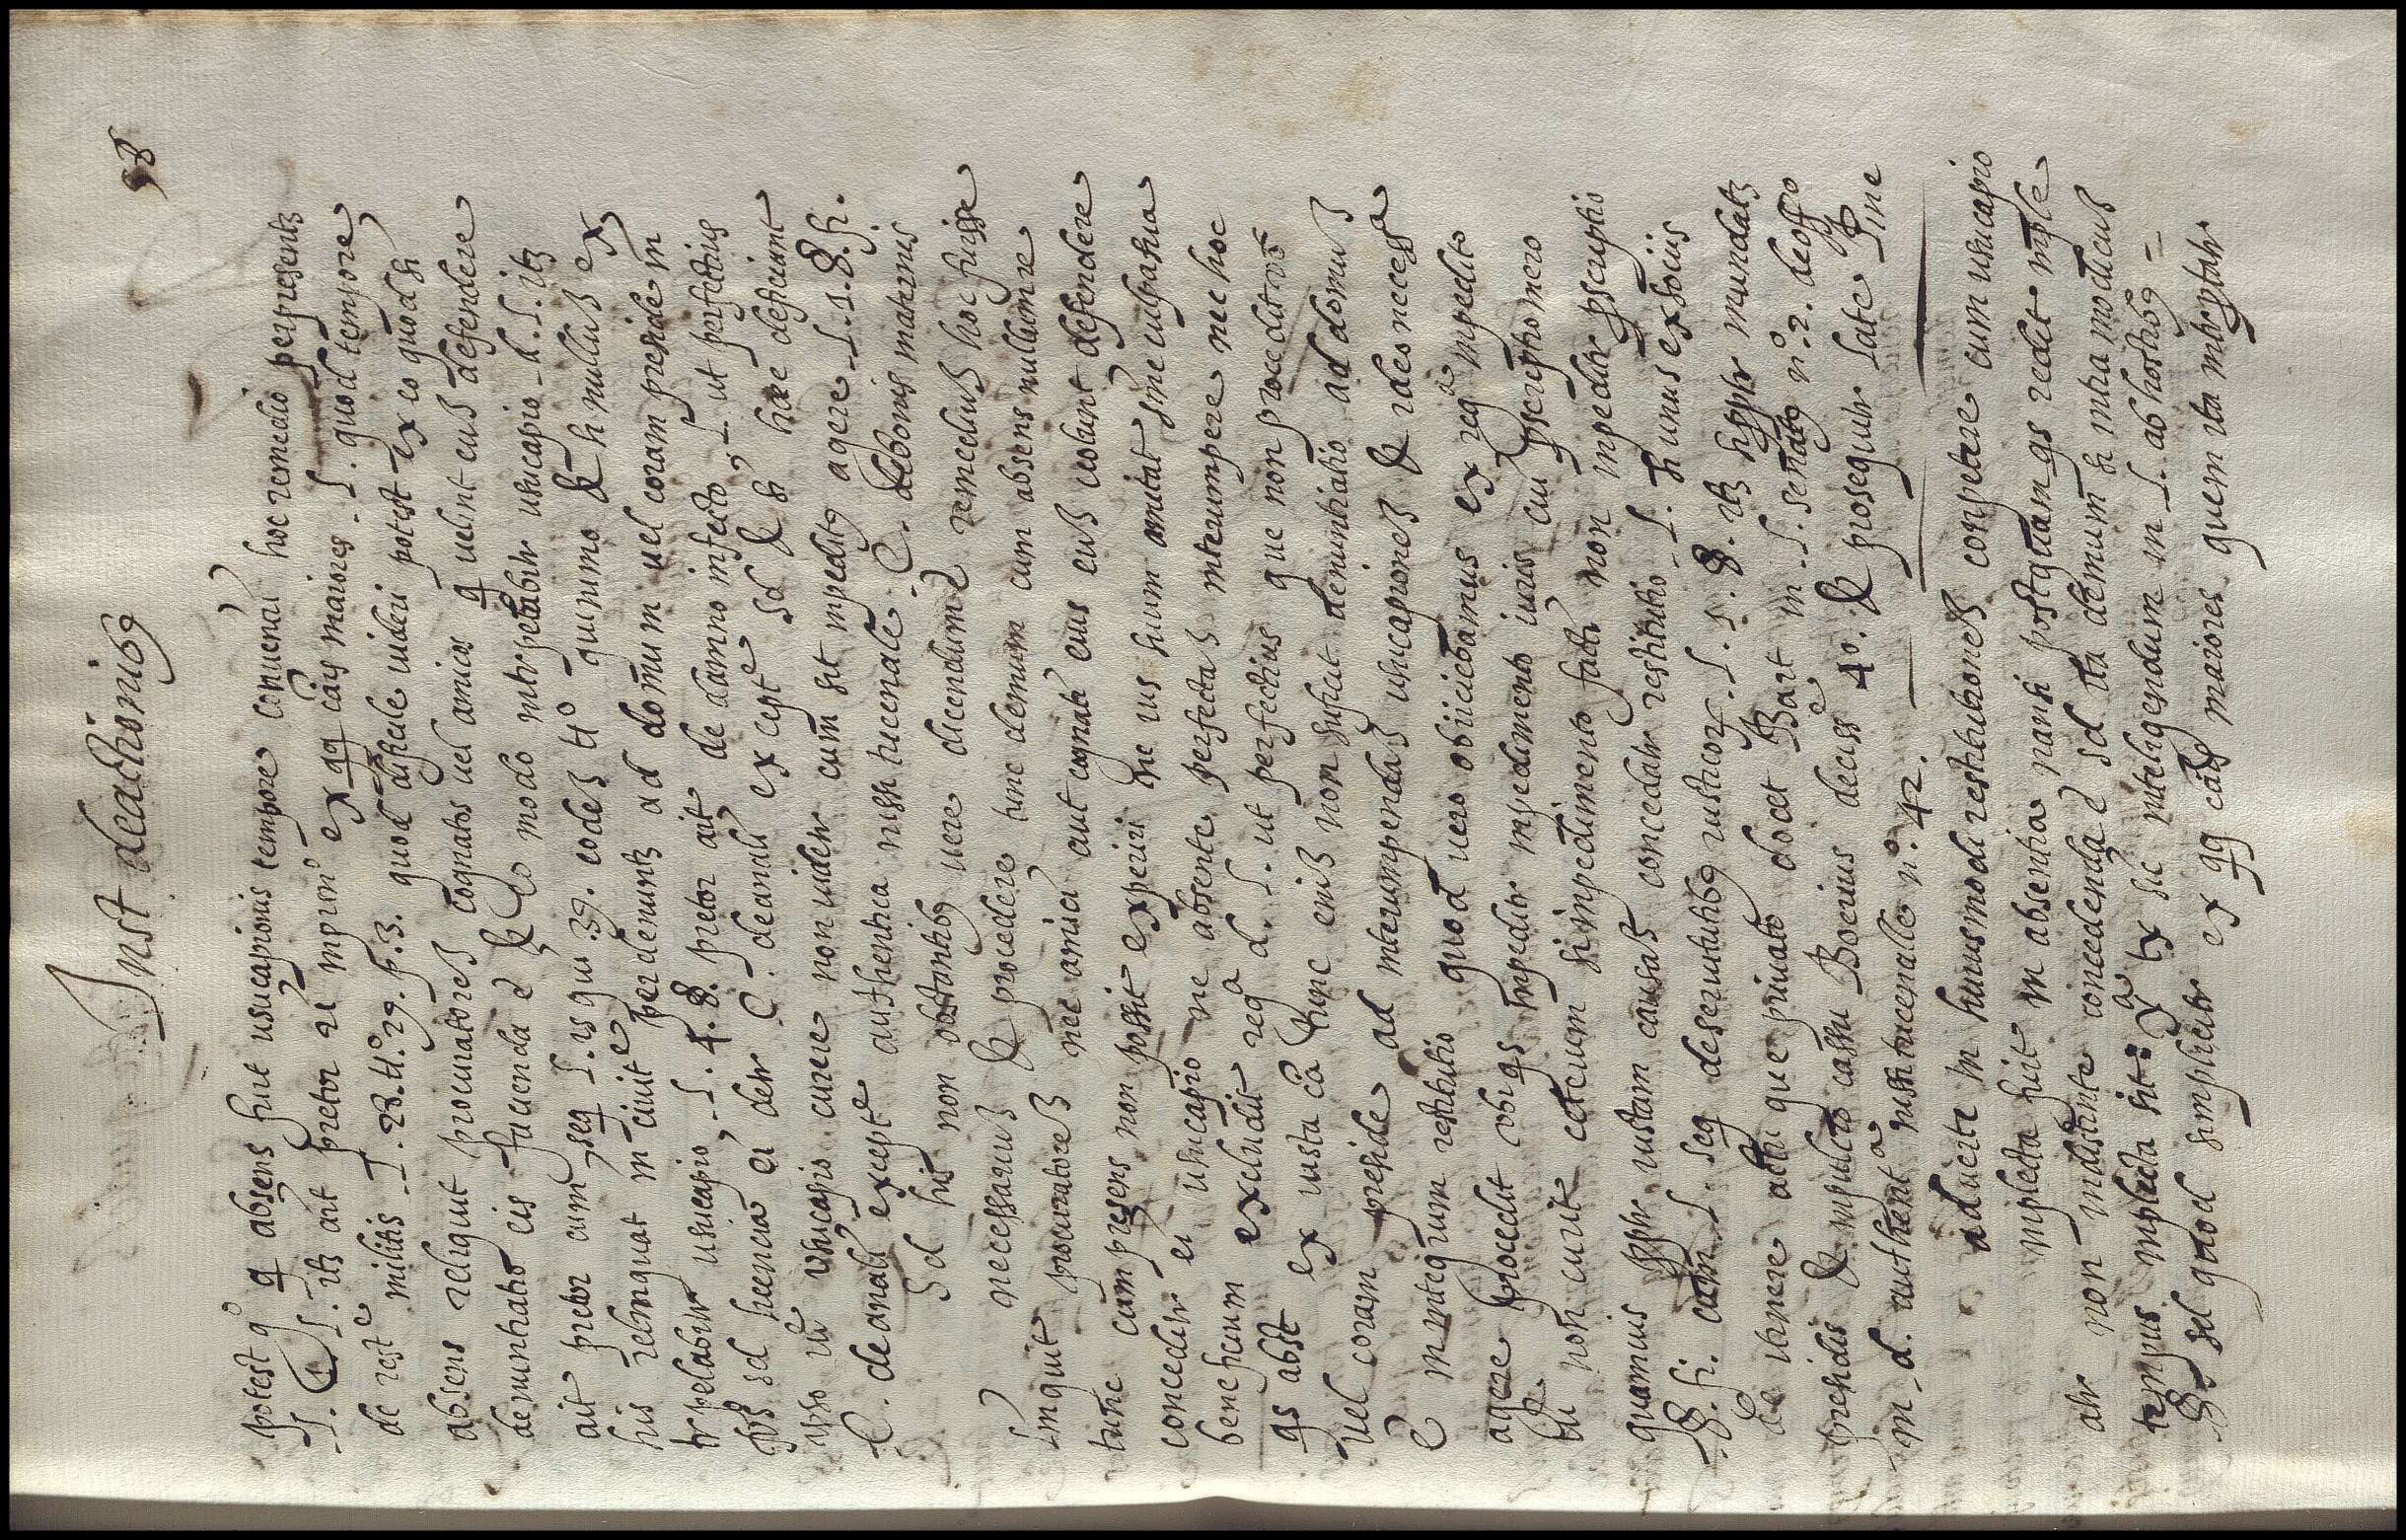 Inst de actionibꝯ
58
potest qº q absens fuit usucapionis tempore conueniri hoc remedio per presents
l. itz ait pretor et impro ex qq cãs maiores l. quod tempore
de rest militis l. 28. tt. 29. p. 3. quod dificile uideri potest ex eo quod si
absens reliquit procuratores cognatos uel amicos q uelint eus defendere
denuntiatio eis facienda e & eo modo intrpelabitr usucapio d. l. itz
ait pretor cum seq l. is qui 39. eodes tt quinimo & si nullus ex
his relinquat in ciuite per denuntz ad domum uel coram preside in
trpelabitr usucapio, l. 4. §. pretor ait de damno infecto, l. ut perfectius
sd licencia ei detr C. de anali except sd & si hæc deficiunt
ipso usucapio curere non uidetr cum sit impeditꝯ agere l. 1. §. fi.
C. de anali except authentica nissi tricenale C. de bonis maternis
Sd his non obstantibꝯ uere dicendum e remedius hoc fuisse
necessarius & procedere tunc demum cum absens nullum re
linquit procuratores nec amici aut cognati eius eus uolunt defendere
tunc cum presens non possit experiri ne ius suum amitat sine culpa sua
conceditr ei usucapio ne absente perfectas interumpere nec hoc
beneficium excludit reg d. l. ut perfectius que non procedit
qs abst ex iusta cã tunc enis non suficit denuntiatio ad domus
uel coram preside ad interumpendas usucapiones & ideo necess
e in integrum restitutio quod uero obiiciebamus ex reg impedito
agere procedit ubi qs impeditr impedimento iuris cui prescriptio nero
tri non curit ceterum si impedimento facti non impeditr prescriptio
quamuis pptr iustam causas concedatr restitutio l. si unus ex sociis
§. fi. cum l. seq de seruitutibꝯ rusticor. l. 1. §. itz si pptr inundatz
de itinere actu que priuato docet Bart in l. senatꝯ nº. 2. de offº
presidis & in pulcro cassu Boerius deciss 4º. & prosequitr late Pine
in d. authent nissi tricenalle nº. 42.
aduerte in huiusmodi restitutiones conpetere cum usucapio
inpleta fuit in absentia nansi postquam qs redit inple
atr non indistinte concedenda e sd ita demum si intra modicus
tempus inpleta sit: ex sic inteligendum in l. ab hostibꝯ
§. sd quod simpliciter ex qq cãs maiores quem ita intrptatr